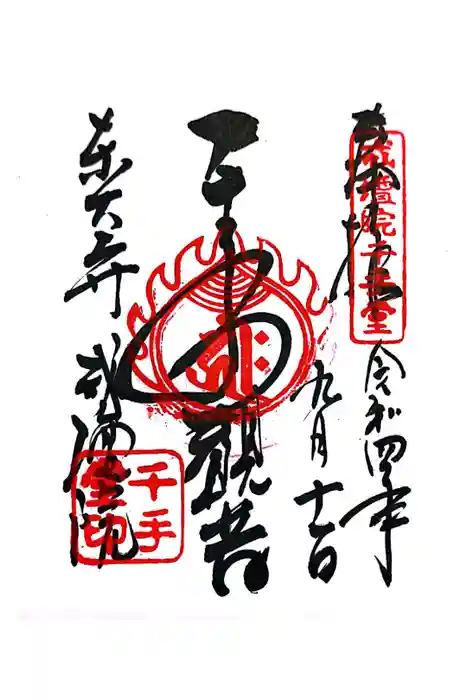 奉拝
戒壇院千手堂
令和四年
九月十一日
千手観音
東大寺
戒壇院
千手
堂印